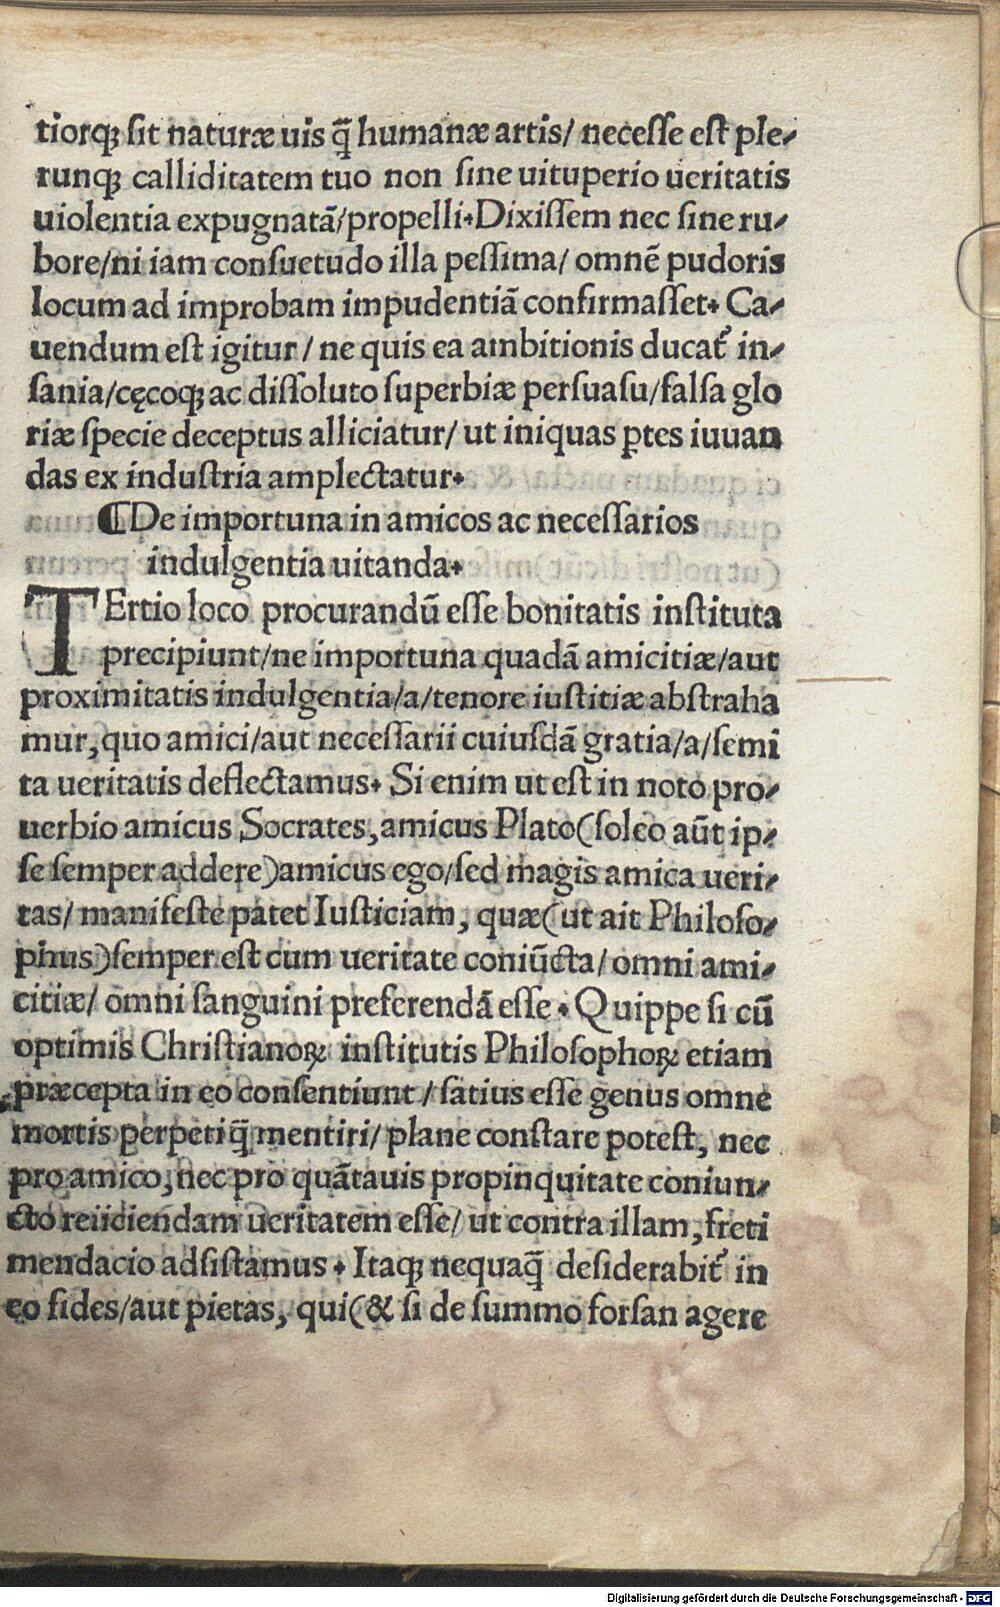 tiorqꝫ ſit naturæ uis q̄ humanæ artis/ neceſſe eſt ple⸗
runqꝫ calliditatem tuo non ſine uituperio ueritatis
uiolentia expugnatā/propelli. Dixiſſem nec ſine ru⸗
bore/ni iam conſuetudo illa peſſima/ omnē pudoris
locum ad improbam impudentiā confirmaſſet. Ca⸗
uendum eſt igitur/ ne quis ea ambitionis ducat᷑ in⸗
ſania/cęcoqꝫ ac diſſoluto ſuperbiæ perſuaſu/falſa glo
riæ ſpecie deceptus alliciatur/ ut iniquas ꝑtes iuuan
das ex induſtria amplectatur.
¶De importuna in amicos ac neceſſarios
indulgentia uitanda.
TErtio loco procurandū eſſe bonitatis inſtituta
precipiunt/ne importuna quadā amicitiæ/aut
proximitatis indulgentia/a/tenore iuſtitiæ abſtraha
mur,quo amici/aut neceſſarii cuiuſdā gratia/a/ſemi
ta ueritatis deflectamus. Si enim ut eſt in noto pro⸗
uerbio amicus Socrates,amicus Plato(ſoleo aūt ip⸗
ſe ſemper addere)amicus ego/ſed magis amica ueri⸗
tas/ manifeſte patet Iuſticiam, quæ(ut ait Philoſo⸗
phus)ſemper eſt cum ueritate coniūcta/ omni ami⸗
citiæ/ omni ſanguini preferendā eſſe. Quippe ſi cū
optimis Chriſtianoꝝ inſtitutis Philoſophoꝝ etiam
præcepta in eo conſentiunt/ ſatius eſſe genus omne
mortis perpeti q̄ mentiri/ plane conſtare poteſt, nec
pro amico,nec pro quātauis propinquitate coniun⸗
cto reiiciendam ueritatem eſſe/ ut contra illam,freti
mendacio adſiſtamus. Itaqꝫ nequaq̄ deſiderabit᷑ in
eo fides/aut pietas, qui(& ſi de ſummo forſan agere
Digitalisierung gefördert durch die Deutsche Forschungsgemeinschaft - DFG